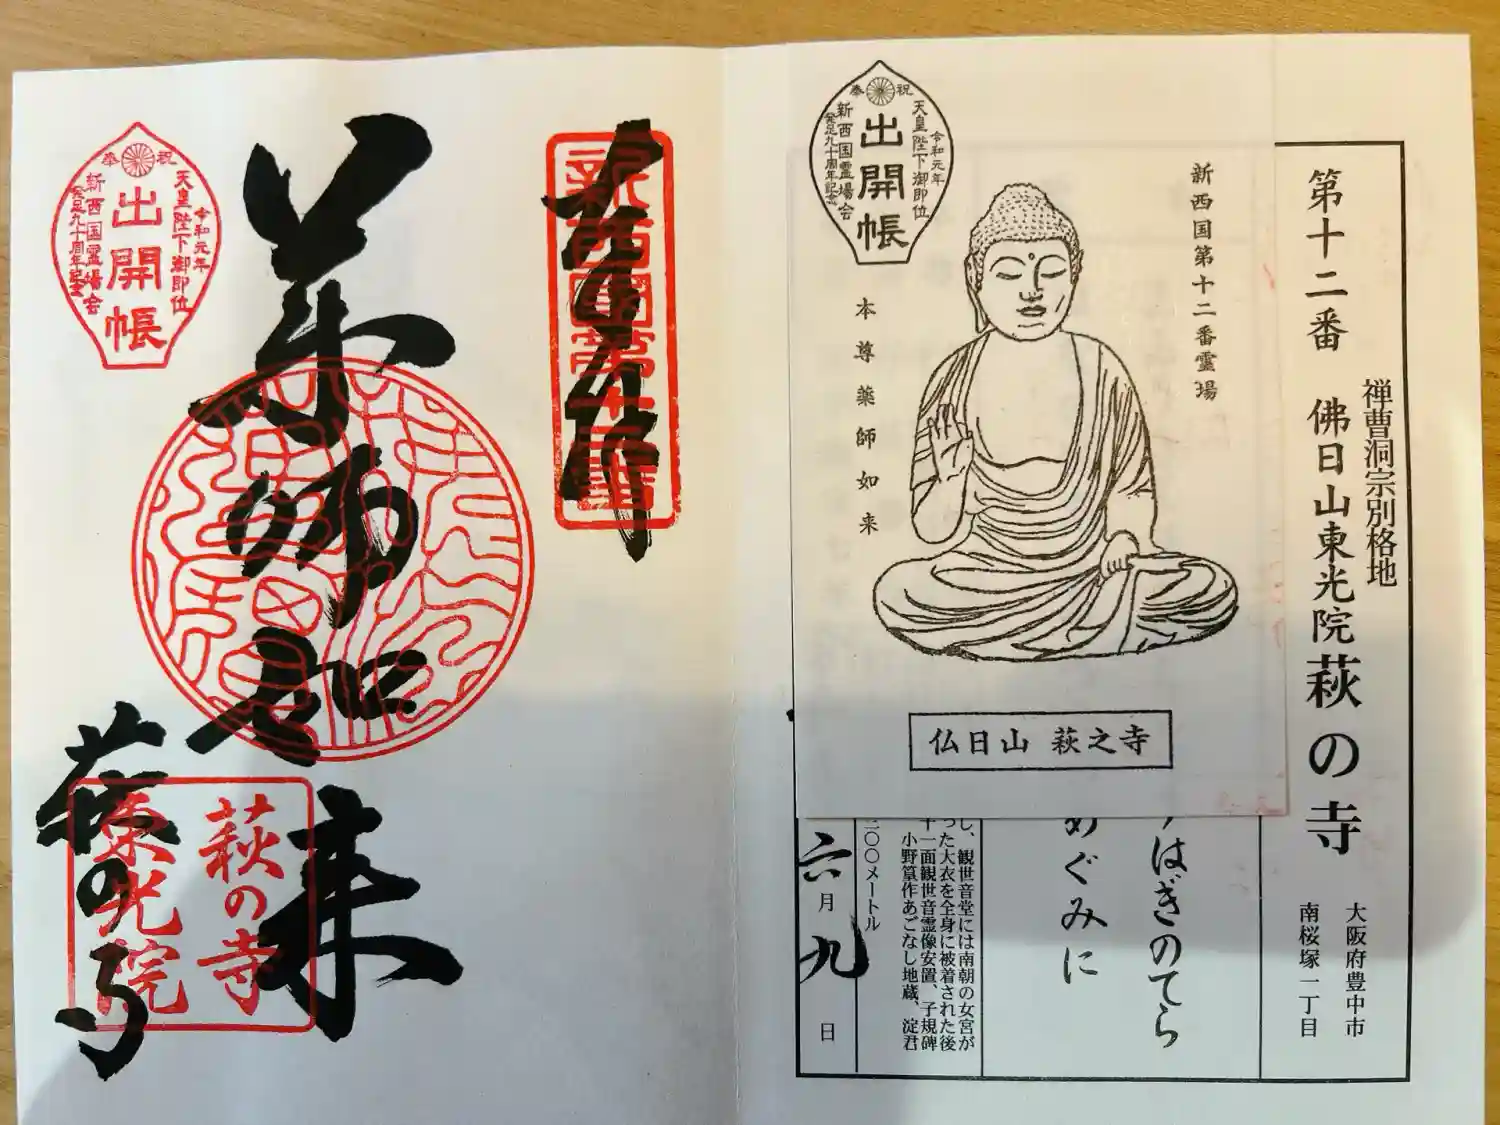 第十二番 佛日山東光院萩の寺
禅曹洞宗別格地
大阪府豊中市
南桜塚一丁目
はぎのてら
めぐみに
し、観世音堂には南朝の女宮が
った大衣を全身に被着された後
十一面観世音霊像安置、子規碑
小野篁作あごなし地蔵、淀君
〇〇メートル
六月九日
新西国第十二番霊場
本尊薬師如来
仏日山 萩之寺
奉祝
令和元年
天皇陛下御即位
出開帳
新西国霊場会
発足九十周年記念
新西國第十二番
薬師如来
奉祝
令和元年
天皇陛下御即位
出開帳
新西国霊場会
発足九十周年記念
萩の寺
萩の寺
東光院